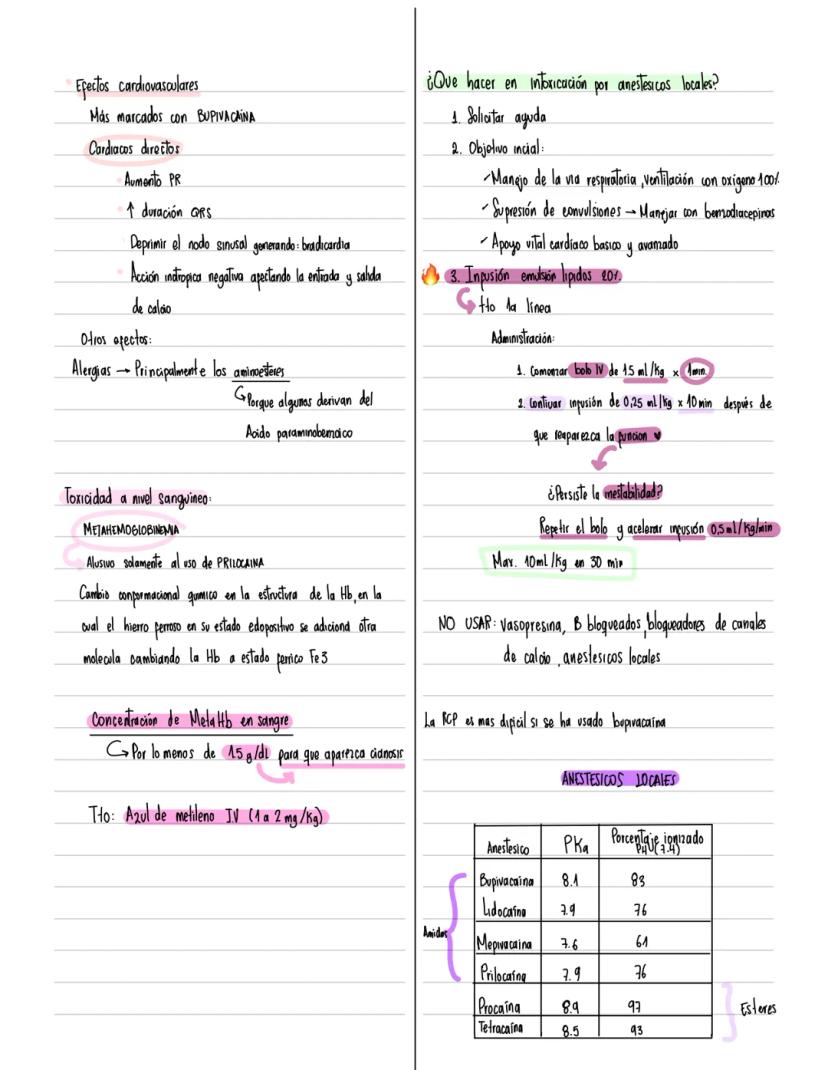 Efectos cardiovasculares
Más marcados con BUPIVACAÍNA
Cardiacos directos
Aumento PR
↑ duración QRS
Deprimir el nodo sinusal generando: bradicardia
Acción inotropica negativa afectando la entrada y salida
de calcio
Otros efectos:
Alergias → Principalmente los aminoesteres
Porque algunos derivan del
Acido paraminobenzoico
Toxicidad a nivel sanguineo:
METAHEMOGLOBINEMIA
Alusivo solamente al uso de PRILOCAINA
Cambio conformacional quimico en la estructura de la Hb, en la
cual el hierro ferroso en su estado edopositivo se adiciona otra
molecula cambiando la Hb a estado ferrico Fe3
Concentración de MetaHb en sangre
Por lo menos de 1.5 g/dl para que aparezca cianosis
Tto: Azul de metileno I.V (1 a 2 mg/Kg)
¿Que hacer en intoxicación por anestesicos locales?
1. Solicitar ayuda
2. Objetivo incial:
Manejo de la via respiratoria, ventilación con oxigeno 100%
Supresión de convulsiones → Manejar con benzodiacepinas
Apoyo vital cardiaco basico y avanzado
🔥 3. Infusión emulsión lipidos 20%
tto 1a línea
Administración:
1. Comenzar bolo IV de 1.5 ml/Kg x 1min.
2. Contiuar infusión de 0,25 ml/Kg x 10 min después de
que reaparezca la funcion ♥
¿Persiste la inestabilidad?
Repetir el bolo y acelerar infusión 0,5ml/Kg/min
Max. 10ml/Kg en 30 min
NO USAR: Vasopresina, B bloqueados, bloqueadores de canales
de calcio, anestesicos locales
La RCP es mas dificil si se ha usado bupivacaina
ANESTESICOS LOCALES
Anestesico PKa Porcentaje ionizado
PH (7.4)
Bupivacaína 8.1 83
Lidocaína 7.9 76
Amidas
Mepivacaina 7.6 61
Prilocaína 7.9 76
Procaína 8.9 97
Esteres
Tetracaína 8.5 93